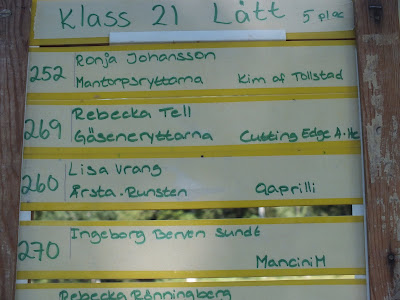 Klass 21 Lätt 5 plac
Ronja Johansson
252 Mantorpsryttarna Kim af Tollstad
Rebecka Tell
269 Gäseneryttarna Cutting Edge A-Hc
Lisa Vrang
260 Årsta-Runsten Qaprilli
Ingeborg Berven Sundt
270 Mancini M
Rebecka Rönningberg